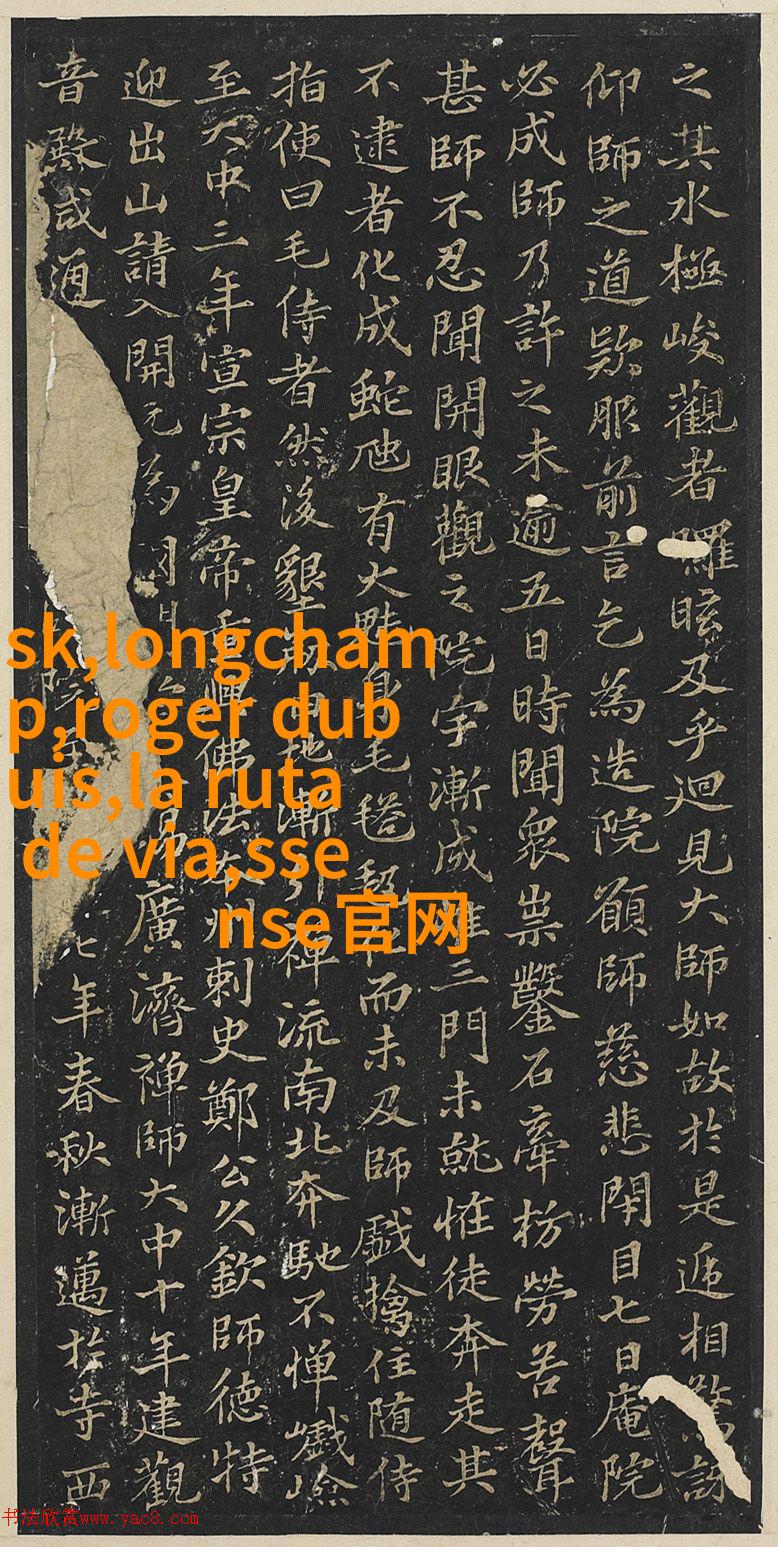 之其水極峻觀者 眩及乎迴見大師如故於是遞相驚訝
仰師之道欵服前言乞為造院願師慈悲閉目七日庵院
必成師乃許之未逾五日時聞衆祟鑿石牽枋勞苦聲
甚師不忍聞開眼觀之院宇漸成惟三門未就恠徒奔走其
不逮者化成蛇虺有大魅身毛毿 在而未及師戲擒住随侍
指使曰毛侍者然後墾 地漸引禪流南北奔馳不憚巇嶮
至大中三年宣宗皇帝重興佛法 刺史鄭公久欽師德特
迎出山請入開元為國 廣濟禅師大中十年建觀
音殿咸通
七年春秋漸邁於寺西
sk,longcham
p,roger dub
uis,la ruta
de via,sse
nse官网
书法欣赏www.yac8.com